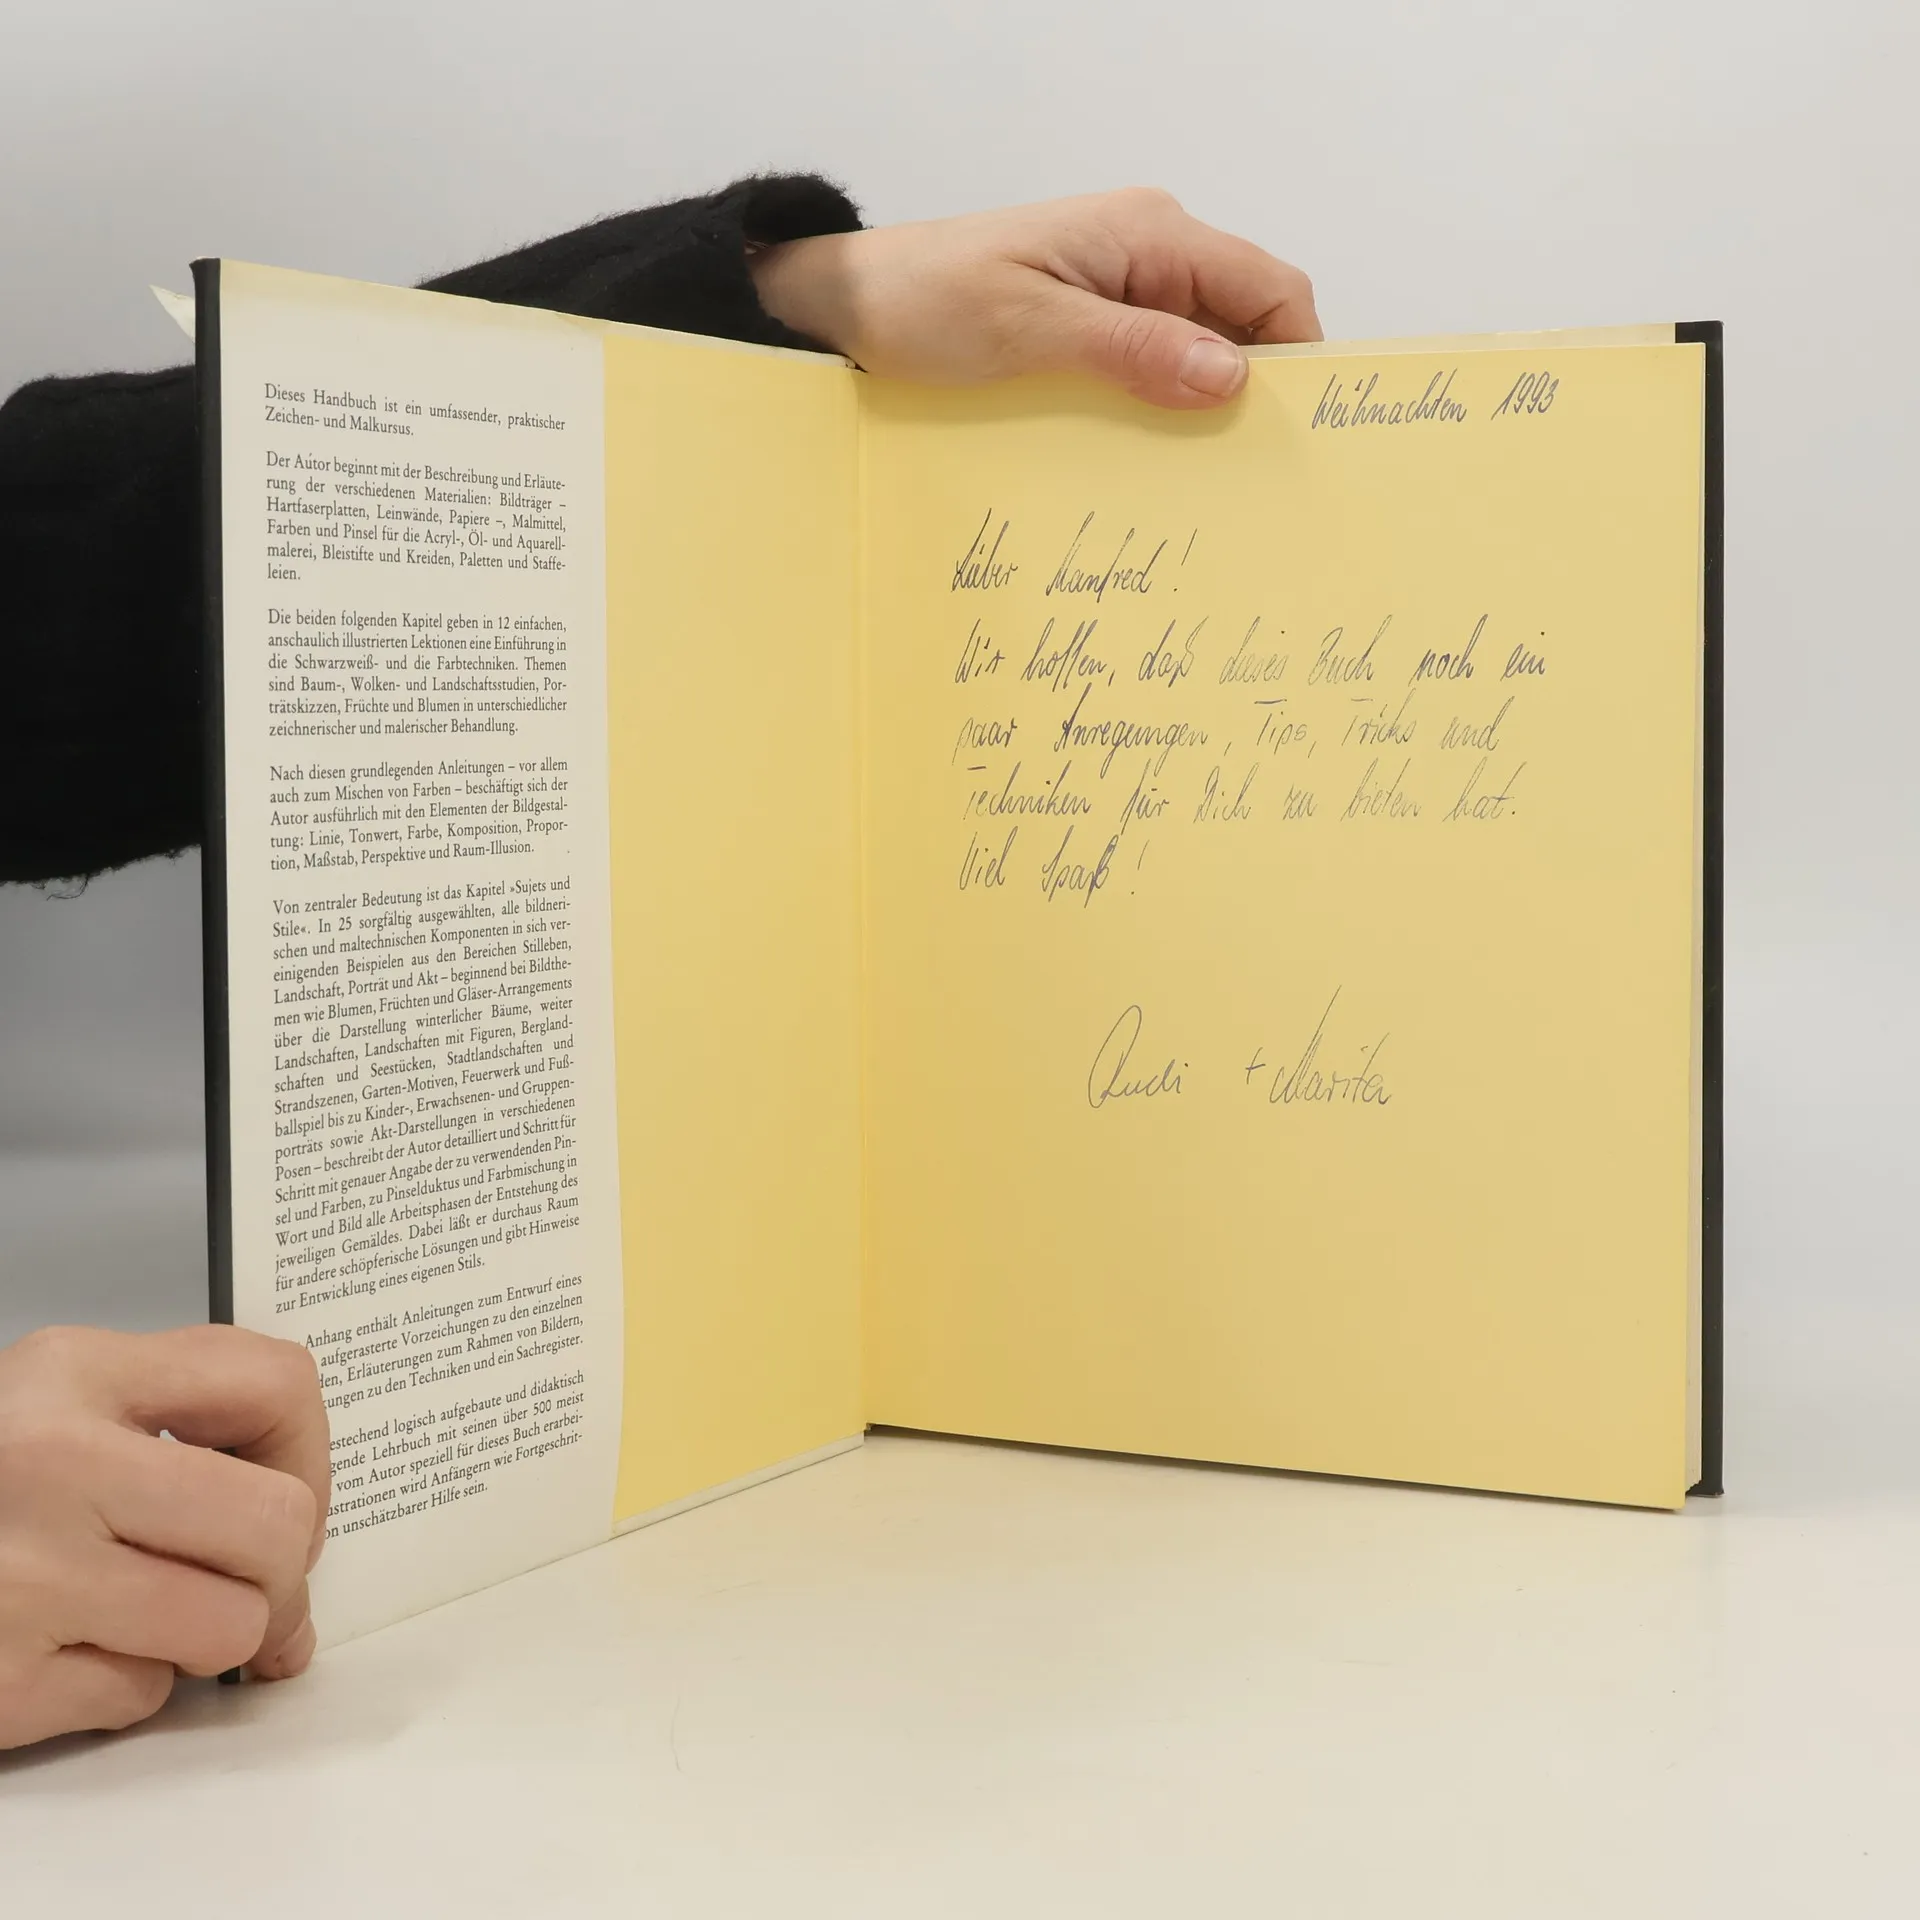 Dieses Handbuch ist ein umfassender, praktischer
Zeichen- und Malkursus.
Der Autor beginnt mit der Beschreibung und Erläute-
rung der verschiedenen Materialien: Bildträger –
Hartfaserplatten, Leinwände, Papiere –, Malmittel,
Farben und Pinsel für die Acryl-, Öl- und Aquarell-
malerei, Bleistifte und Kreiden, Paletten und Staffe-
leien.
Die beiden folgenden Kapitel geben in 12 einfachen,
anschaulich illustrierten Lektionen eine Einführung in
die Schwarzweiß- und die Farbtechniken. Themen
sind Baum-, Wolken- und Landschaftsstudien, Por-
trätskizzen, Früchte und Blumen in unterschiedlicher
zeichnerischer und malerischer Behandlung.
Nach diesen grundlegenden Anleitungen – vor allem
auch zum Mischen von Farben – beschäftigt sich der
Autor ausführlich mit den Elementen der Bildgestal-
tung: Linie, Tonwert, Farbe, Komposition, Propor-
tion, Maßstab, Perspektive und Raum-Illusion.
Von zentraler Bedeutung ist das Kapitel »Sujets und
Stile«. In 25 sorgfältig ausgewählten, alle bildneri-
schen und maltechnischen Komponenten in sich ver-
einigenden Beispielen aus den Bereichen Stilleben,
Landschaft, Porträt und Akt – beginnend bei Bildthe-
men wie Blumen, Früchten und Gläser-Arrangements
über die Darstellung winterlicher Bäume, weiter
Landschaften, Landschaften mit Figuren, Bergland-
schaften und Seestücken, Stadtlandschaften und
Strandszenen, Garten-Motiven, Feuerwerk und Fuß-
ballspiel bis zu Kinder-, Erwachsenen- und Gruppen-
porträts sowie Akt-Darstellungen in verschiedenen
Posen – beschreibt der Autor detailliert und Schritt für
Schritt mit genauer Angabe der zu verwendenden Pin-
sel und Farben, zu Pinselduktus und Farbmischung in
Wort und Bild alle Arbeitsphasen der Entstehung des
jeweiligen Gemäldes. Dabei läßt er durchaus Raum
für andere schöpferische Lösungen und gibt Hinweise
zur Entwicklung eines eigenen Stils.
Anhang enthält Anleitungen zum Entwurf eines
aufgerasterte Vorzeichungen zu den einzelnen
den, Erläuterungen zum Rahmen von Bildern,
kungen zu den Techniken und ein Sachregister.
estechend logisch aufgebaute und didaktisch
gende Lehrbuch mit seinen über 500 meist
vom Autor speziell für dieses Buch erarbei-
ustrationen wird Anfängern wie Fortgeschrit-
on unschätzbarer Hilfe sein.
Weihnachten 1993
Lieber Manfred!
Wir hoffen, daß dieses Buch noch ein
paar Anregungen, Tips, Tricks und
Techniken für Dich zu bieten hat.
Viel Spaß!
Rudi + Marita